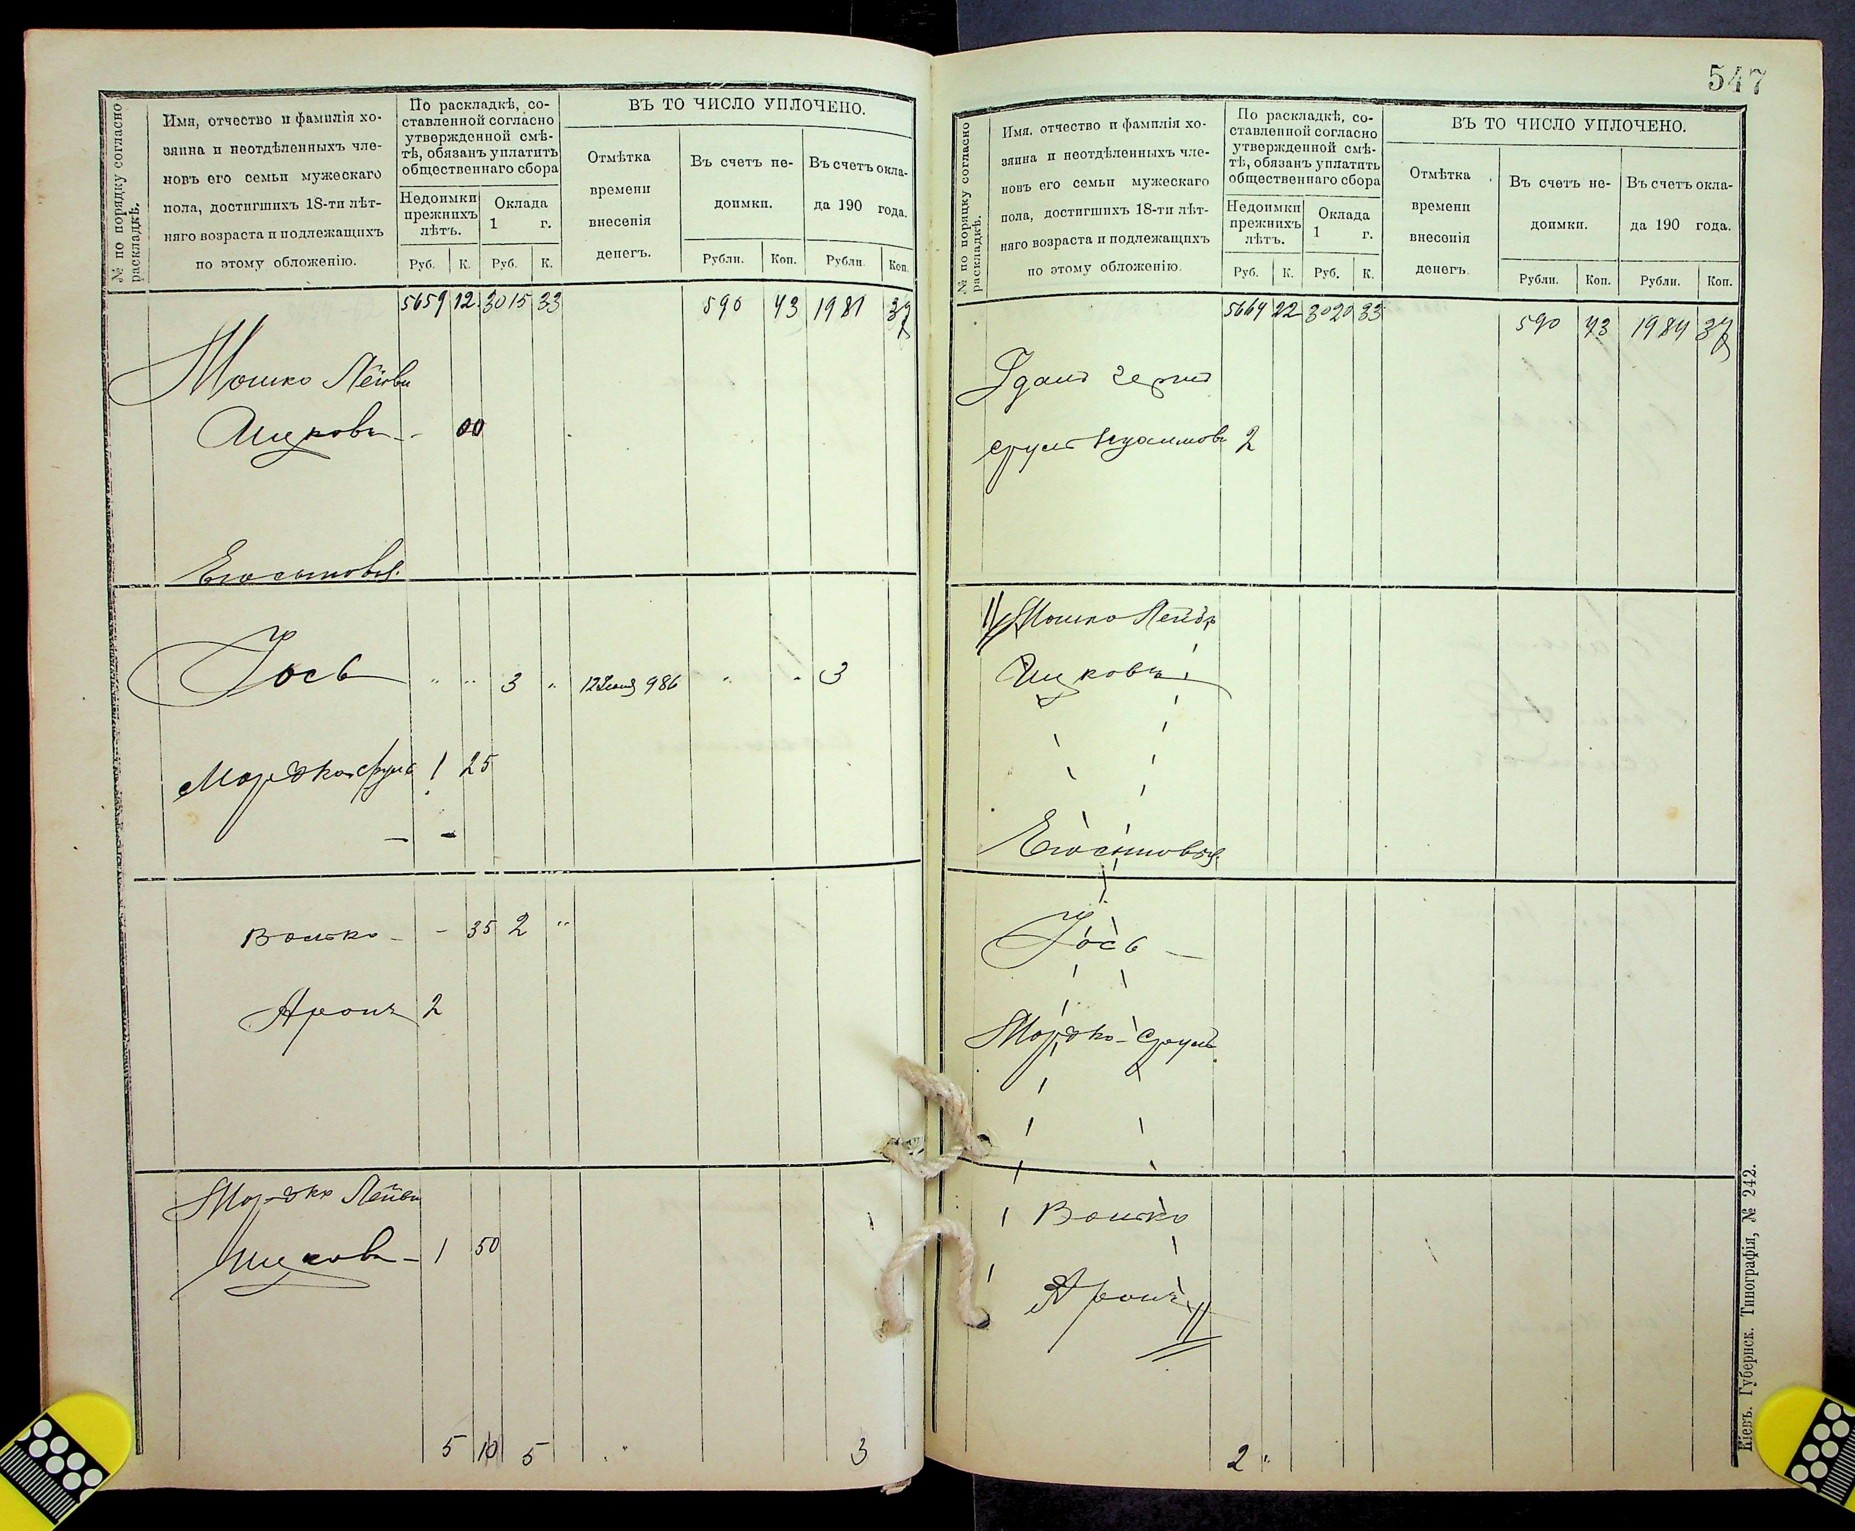 № по порядку согласно
раскладкѣ.
Имя, отчество и фамилія хо-
зяина и неотдѣленныхъ чле-
новъ его семьи мужескаго
пола, достигшихъ 18-ти лѣт-
няго возраста и подлежащихъ
по этому обложенію.
По раскладкѣ, со-
ставленной согласно
утвержденной смѣ-
тѣ, обязанъ уплатить
общественнаго сбора
Недоимки
прежнихъ
лѣтъ.
Оклада
1 г.
Руб. К. Руб. К.
ВЪ ТО ЧИСЛО УПЛОЧЕНО.
Отмѣтка
времени
внесенія
денегъ.
Въ счетъ не-
доимки.
Въ счетъ окла-
да 190 года.
Рубли. Коп. Рубли Коп.
5659 12 3015 33 590 43 1981 37
Мошко Лейви
Ицковъ - 00
Іось " " 3 " 12 986 " " 3
Мордко-сруль 1 25
Волько - - 35 2 "
Аронъ 2
Мордко Лейви
Ицковъ - 1 50
5 10 5 3
547
№ по порядку согласно
раскладкѣ.
Имя, отчество и фамилія хо-
зяина и неотдѣленныхъ чле-
новъ его семьи мужескаго
пола, достигшихъ 18-ти лѣт-
няго возраста и подлежащихъ
по этому обложенію.
По раскладкѣ, со-
ставленной согласно
утвержденной смѣ-
тѣ, обязанъ уплатить
общественнаго сбора
Недоимки
прежнихъ
лѣтъ.
Оклада
1 г.
Руб. К. Руб. К.
ВЪ ТО ЧИСЛО УПЛОЧЕНО.
Отмѣтка
времени
внесенія
денегъ.
Въ счетъ не-
доимки.
Въ счетъ окла-
да 190 года.
Рубли. Коп. Рубли. Коп.
5664 22 3020 33 590 43 1984 37
сруль 2
Мошко Лейбъ
Ицковъ
Іось -
Мордко-Сруль
Волько
Аронъ
2 "
Кіевъ. Губернск. Типографія, № 242.